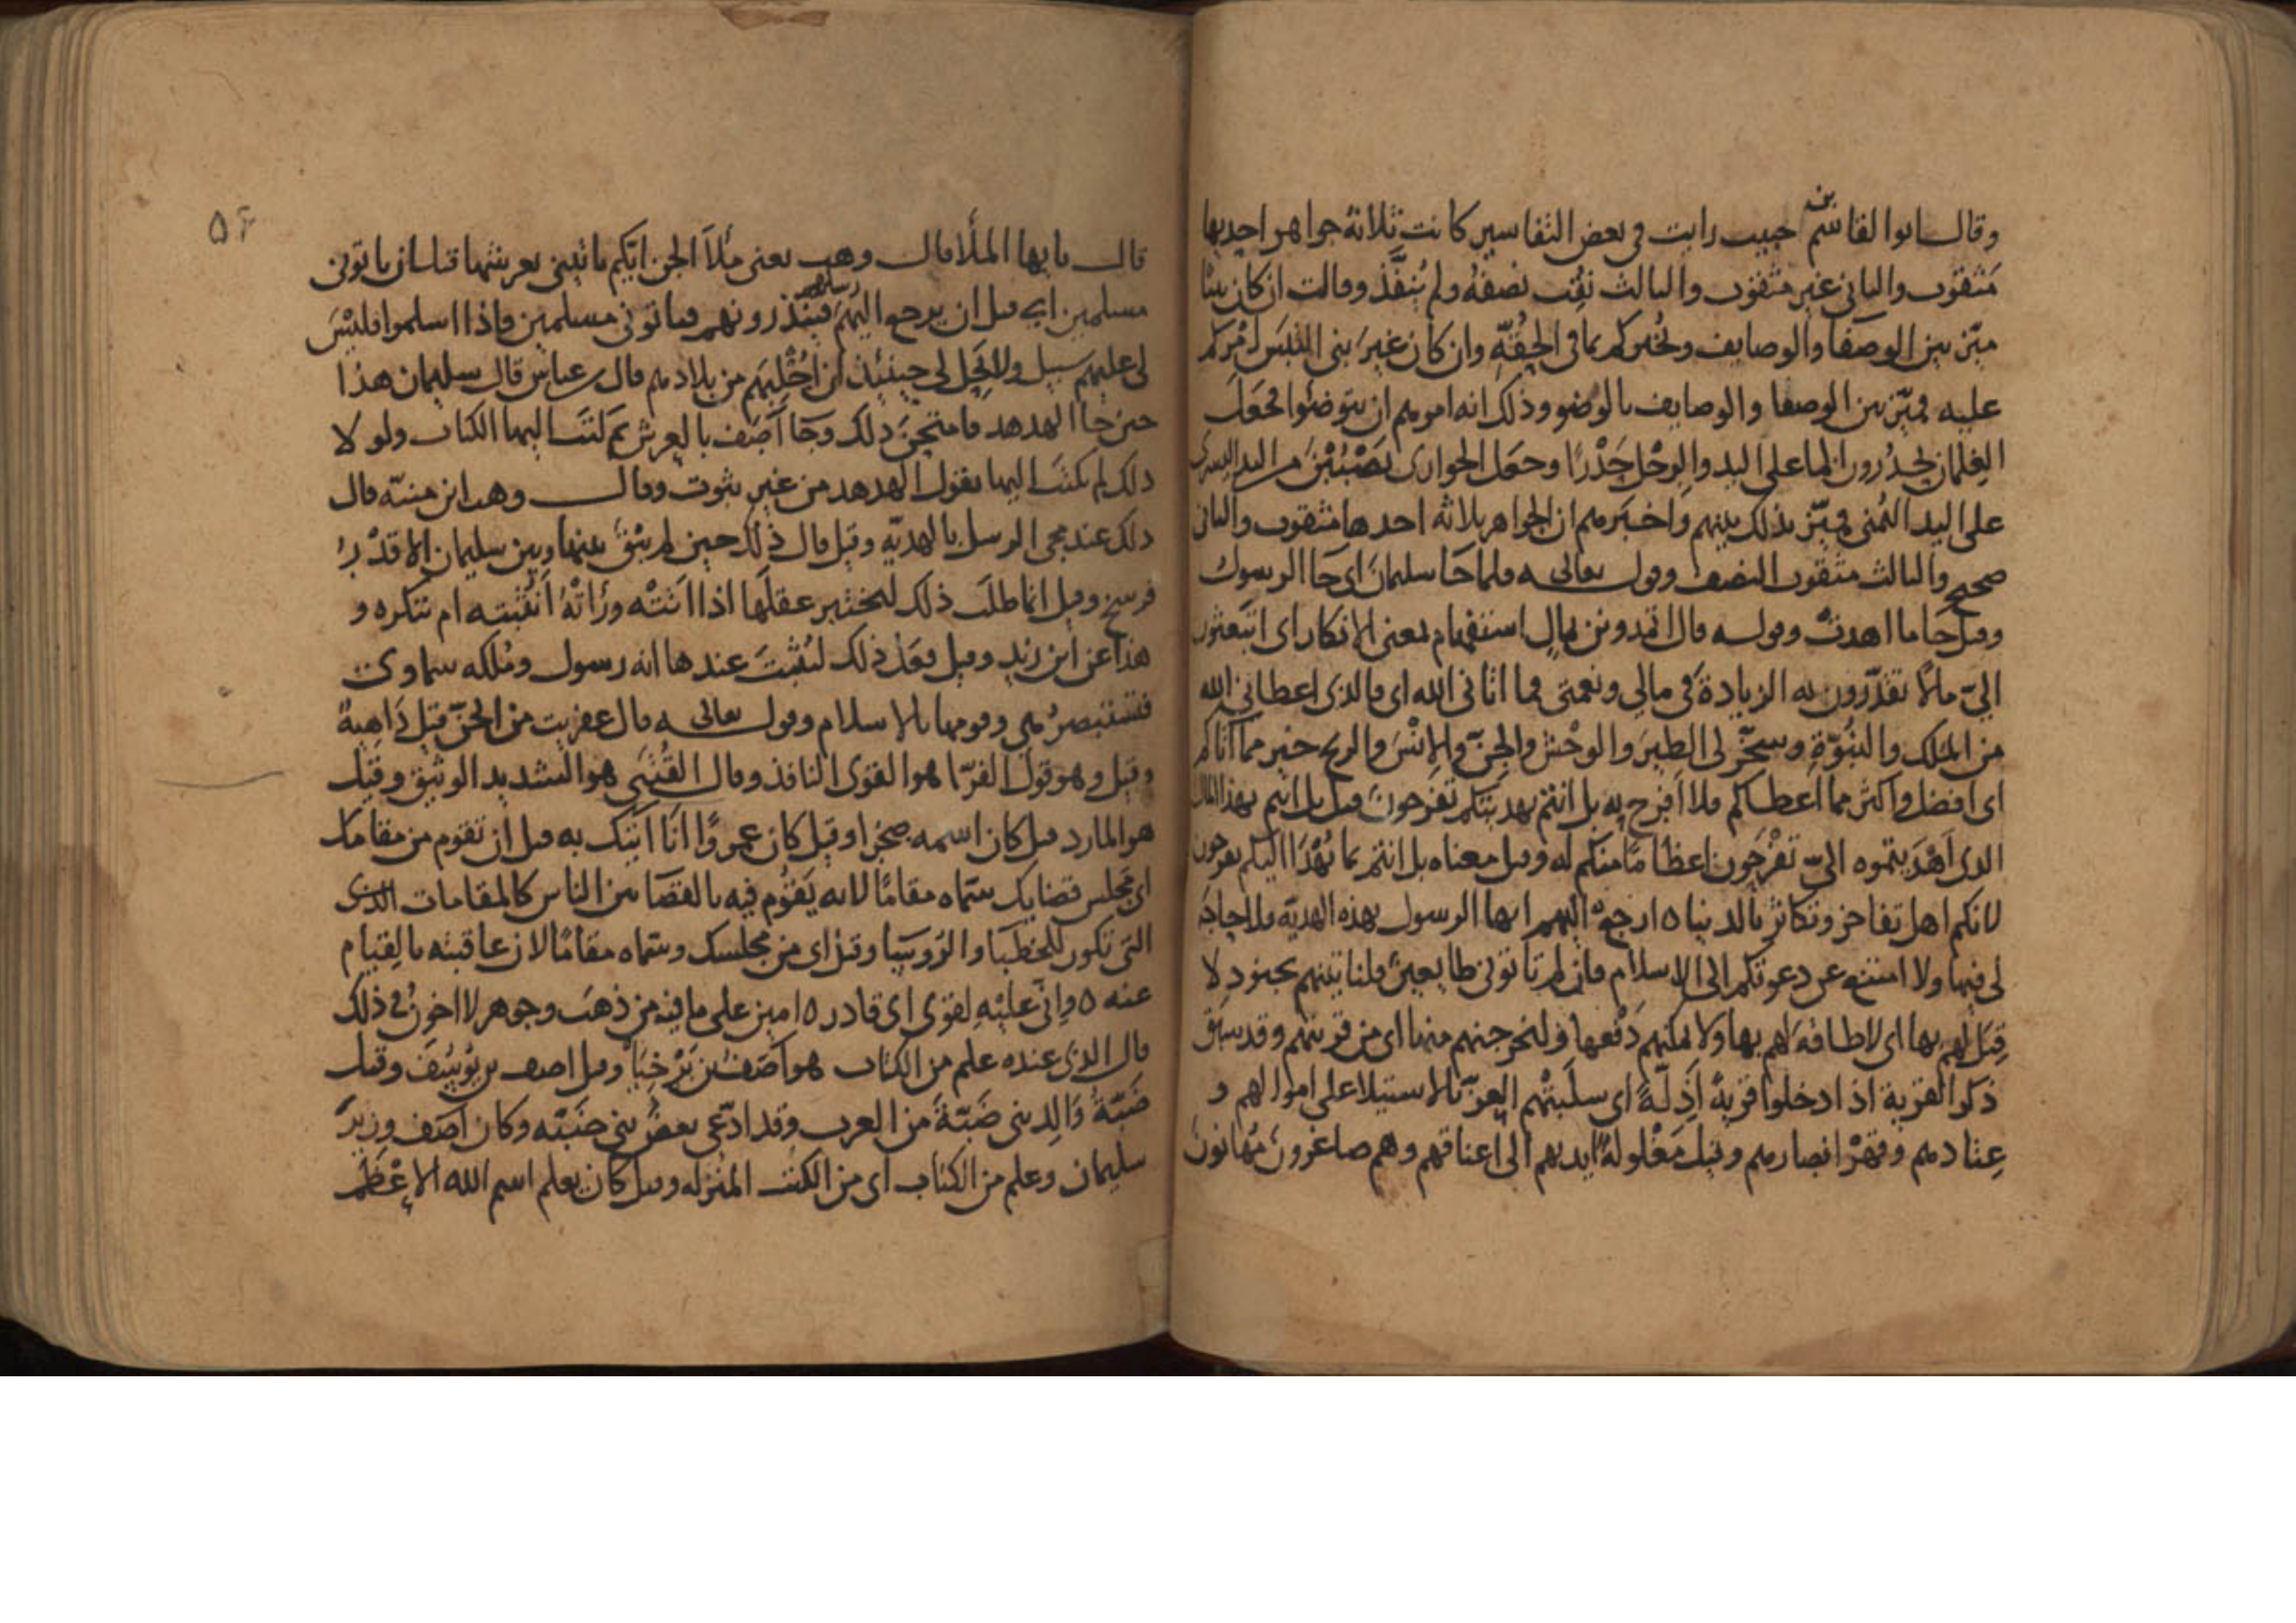 وقال ابوا القاسم بن حبيب رايت في بعض التفاسير كانت ثلاثة جواهر احديها
مثقوب والثاني غير مثقوب والثالث نقب نصفه ولم ينفذ وقالت ان كان نبيّا
ميّز بين الوصفا والوصايف ونخبركم بما في الحقّه وان كان غير نبي التبس امركم
عليه فميّز بين الوصفا والوصايف بالوضو وذلك انه امرهم ان يتوضئوا فجعل
الغلمان يحدُرون الما على اليد والرجل حَدْرًا وجعل الجواري يصببن من اليد اليسرى
على اليد اليمنى فميّز بذلك بينهم واخبرهم ان الجواهر ثلاثه احدها مثقوب والثاني
صحيح والثالث مثقوب النصف وقوله تعالى فلما جا سليمان اي جا الرسول
وقيل جا ما اهدت وقوله قال اتمدونن بمال استفهام بمعنى الانكار اي اتبعثون
اليّ مالًا تقدّرون به الزيادة في مالي ونعمتي فما اتاني الله اي فالذي اعطاني الله
من الملك والنبوّة وسخّر لي الطير والوحش والجنّ والانس والريح خير مما آتاكم
اي افضل واكثر مما اعطاكم فلا افرح به بل انتم بهديتكم تفرحون وقيل بل انتم بهذا المال
الذي اهديتموه اليّ تفرحون اعظامًا منكم له وقيل معناه بل انتم بما يُهْدَا اليكم تفرحون
لانكم اهل تفاخر وتكاثر بالدنيا ه ارجع اليهم ايها الرسول بهذه الهديّة فلا حاجة
لي فيها ولا امتنع عن دعوتكم الى الاسلام فان لم تاتوني طايعين فلناتينهم بجنود لا
قِبَل لهم بها اي لا طاقة لهم بها ولا يمكنهم دفعها ولنخرجنهم منها اي من قريتهم وقد سبق
ذكر القرية اذا دخلوا قرية اذلّةً اي سلبتهم العزّ بالاستيلا على اموالهم و
عتادهم وقهر انصارهم وقيل مغلولة ايديهم الى اعناقهم وهم صاغرون مُهانون
٥٤
قال يايها الملأ قال وهب يعني ملأ الجن ايّكم ياتيني بعرشها قبل ان ياتوني
مسلمين اي قبل ان يرجع اليهم رسلهم فينذرونهم فياتوني مسلمين فاذا اسلموا فليس
لي عليهم سبيل ولا يحلّ لي حينئذ ان اجليهم من بلادهم قال ابن عباس قال سليمان هذا
حين جا الهدهد فامتحن ذلك وجا آصف بالعرش ثم كتب اليها الكتاب ولو لا
ذلك لم يكتب اليها بقول الهدهد من غير ثبوت وقال وهب ابن منبّه قال
ذلك عند مجي الرسل بالهديّة وقيل قال ذلك حين لم يبق بينها وبين سليمان الا قدر
فرسخ وقيل انما طلب ذلك ليختبر عقلها اذا اتته وراته اتثبته ام تنكره و
هذا عن ابن زيد وقيل فعل ذلك ليثبت عندها انه رسول وملكه سماوي
فتستبصر هي وقومها بالاسلام وقوله تعالى قال عفريت من الجنّ قيل داهية
وقيل وهو قول الفرّا هو القوي النافذ وقال القتبي هو الشديد الوثيق وقيل
هو المارد قيل كان اسمه صخرا وقيل كان عمروًا انا اتيك به قبل ان تقوم من مقامك
اي مجلس قضايك سمّاه مقامًا لانه يقوم فيه بالقضا بين الناس كالمقامات
التي تكون للخطبا والروسيا وقيل اي من مجلسك وسمّاه مقامًا لان عاقبته بالقيام
عنه ه وانّي عليه لقوي اي قادر ه امين على ما فيه من ذهب وجوهر لا اخون في ذلك
قال الذي عنده علم من الكتاب هو آصف بن برخيا وقيل اصف بن وقيل
ضَبّة والد بني ضبّة من العرب وقد ادّعى بعض بني ضبّه وكان آصف وزير
سليمان وعلم من الكتاب اي من الكتب المنزله وقيل كان يعلم اسم الله الاعظم